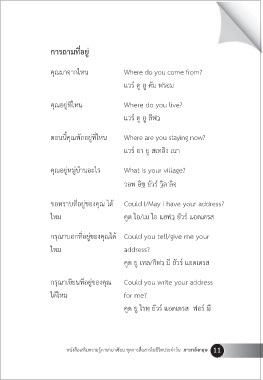 การถามที่อยู่
คุณมาจากไหน Where do you come from?
แวร์ ดู ยู คัม ฟรอม
คุณอยู่ที่ไหน Where do you live?
แวร์ ดู ยู ลีฟว
ตอนนี้คุณพักอยู่ที่ไหน Where are you staying now?
แวร์ อา ยู สเตอิง เนา
คุณอยู่หมู่บ้านอะไร What is your village?
วอท อิซ ยัวร์ วิลาลิจ
ขอทราบที่อยู่ของคุณ ได้ Could I/May I have your address?
ไหม คูด ไอ/เม ไอ แฮฟว ยัวร์ แอดเดรส
กรุณาบอกที่อยู่ของคุณได้ Could you tell/give me your
ไหม address?
คูด ยู เทล/กิฟว มี ยัวร์ แอดเดรส
กรุณาเขียนที่อยู่ของคุณ Could you write your address
ได้ไหม for me?
คูด ยู ไรท ยัวร์ แอดเดรส ฟอร์ มี
หนังสือเสริมความรู้ภาษาอาเซียน ชุดการสื่อสารในชีวิตประจำวัน ภาษาอังกฤษ 11